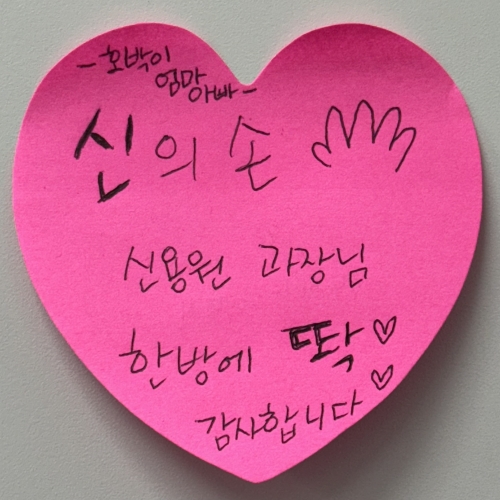 - 호박이
엄마
아빠 -
신의 손
신용원 과장님
한방에 딱♡
♡
감사합니다